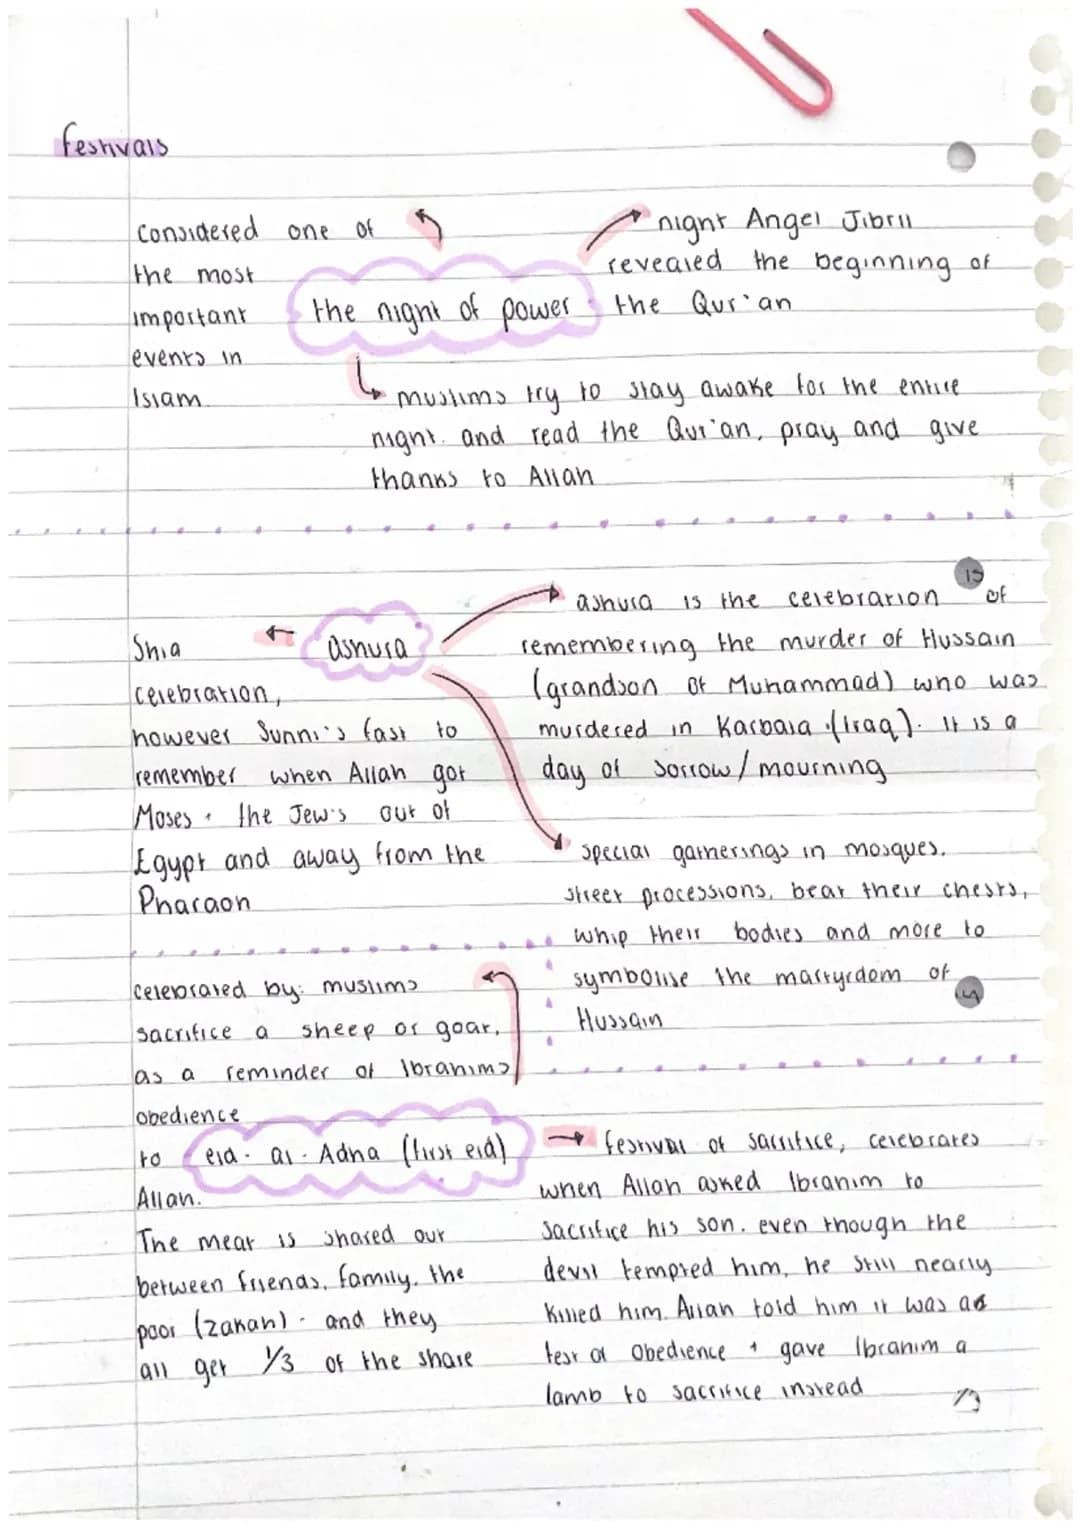 festivals
considered one of
the most
important
events in
Islam
the night of power
night Angel Jibril
revealed the beginning of
the Qur'an
muslims try to stay awake for the entire
night. and read the Qur'an, pray and give
thanks to Allah
ashura
Shia
celebration,
however Sunni's fast to
remember when Allah got
Moses + the Jew's out of
Egypt and away from the
Pharaoh
ashura is the celebration of
remembering the murder of Hussain
(grandson of Muhammad) who was
murdered in Karbala (Iraq). it is a
day of sorrow/mourning
special gatherings in mosques.
street processions, beat their chests,
whip their bodies and more to
symbolise the martyrdom of
Hussain
celebrated by: muslims
sacrifice a sheep or goat,
as a reminder of Ibrahims
obedience
to
Allah.
eid-al-Adha (first eid)
The meat is shared out
between friends, family, the
poor (zakah) - and they
all get 1/3 of the share
festival of sacrifice, celebrates
when Allah asked Ibrahim to
sacrifice his son. even though the
devil tempted him, he still nearly
killed him. Allah told him it was a
test of obedience + gave Ibrahim a
lamb to sacrifice instead